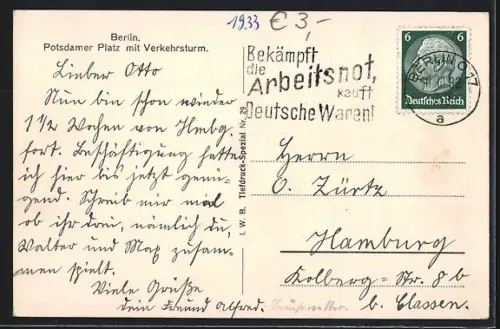 Berlin.
Potsdamer Platz mit Verkehrsturm.
1933 € 3,-
Bekämpft
die
Arbeitsnot,
kauft
Deutsche Waren!
BERLIN O 17
a
6 6
Deutsches Reich
Lieber Otto
Nun bin schon wieder
1 1/2 Wochen von Hmbg.
fort. Beschäftigung hatte
ich hier bis jetzt genü-
gend. Schreib mir mal
ob ihr drei, nämlich du,
Walter und Max zusam-
men spielt.
Viele Grüße
dein Freund Alfred.
I. W. B. Tiefdruck-Spezial Nr. 29
Herrn
O. Zürtz
Hamburg
Kolberg-Str. 8 b
b. Classen.